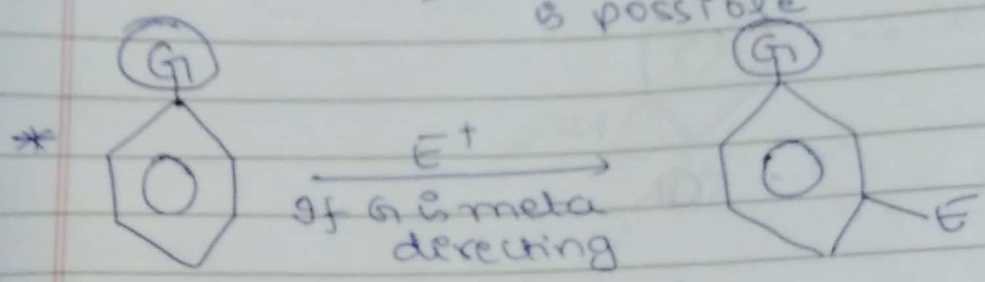 is possible
G G
* E+
If G is meta
derecting E